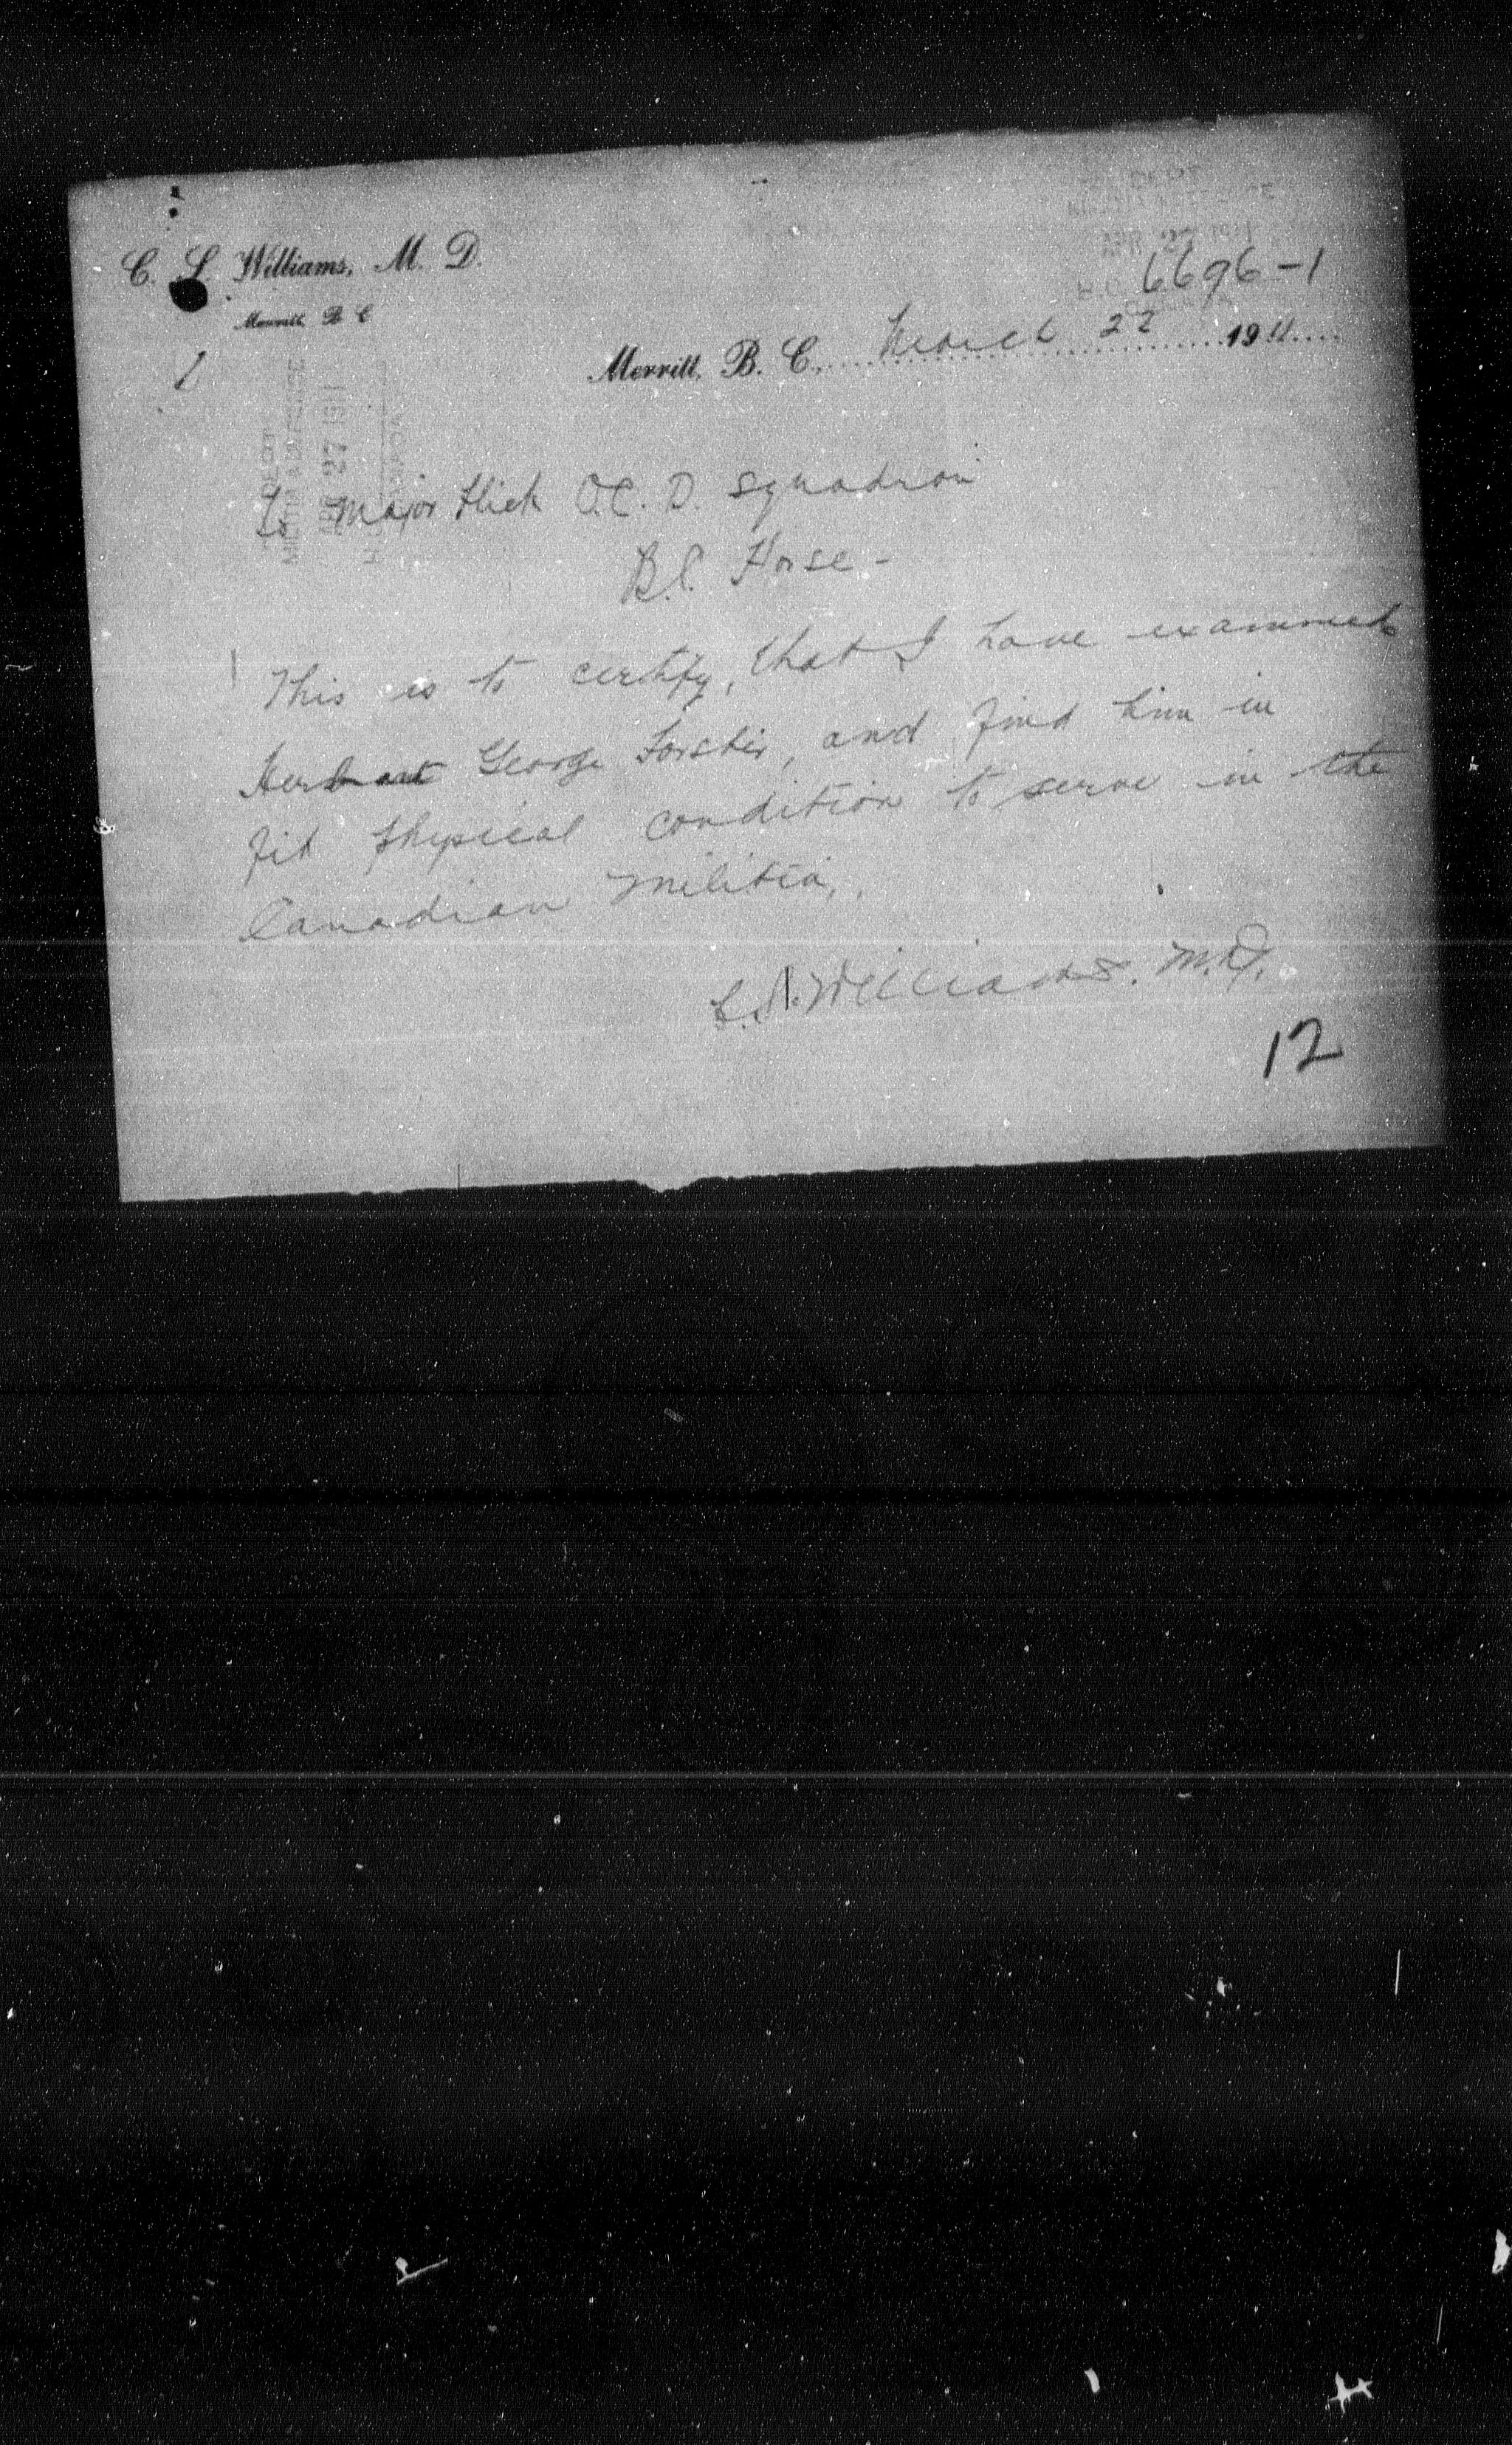 C. L. Williams, M. D.
Merritt, B. C
6696-1
Merritt, B. C., March 22 1911
1
DEPT
MILITIA & DEFENCE
27 1911
To Major Flick O.C. D. Squadron
B.C. Horse -
This is to certify, that I have examined
Herbert George Forster, and find him in
fit physical condition to serve in the
Canadian Militia.
C.L. Williams. M.D.
12